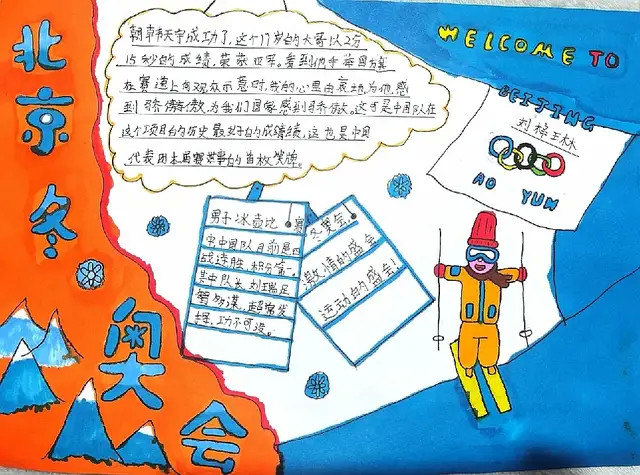 北京冬奥会
韩天宇成功了,这个17岁的大哥以2分
15秒的成绩,荣获亚军,看到他手举国旗
在赛道上向观众示意时,我的心里由衷地为他感
到骄傲,为我们国家感到骄傲。这也是中国队在
这个项目的历史最好的成绩,这也是中国
代表团本届赛事的首枚奖牌。
WELCOME TO
BEIJING
AO YUN
男子冰壶比赛
中国队目前是四
战连胜,积分第一,
其中队长刘瑞足
智多谋,超常发
挥,功不可没。
冬奥会,
激情的盛会
运动的盛会!